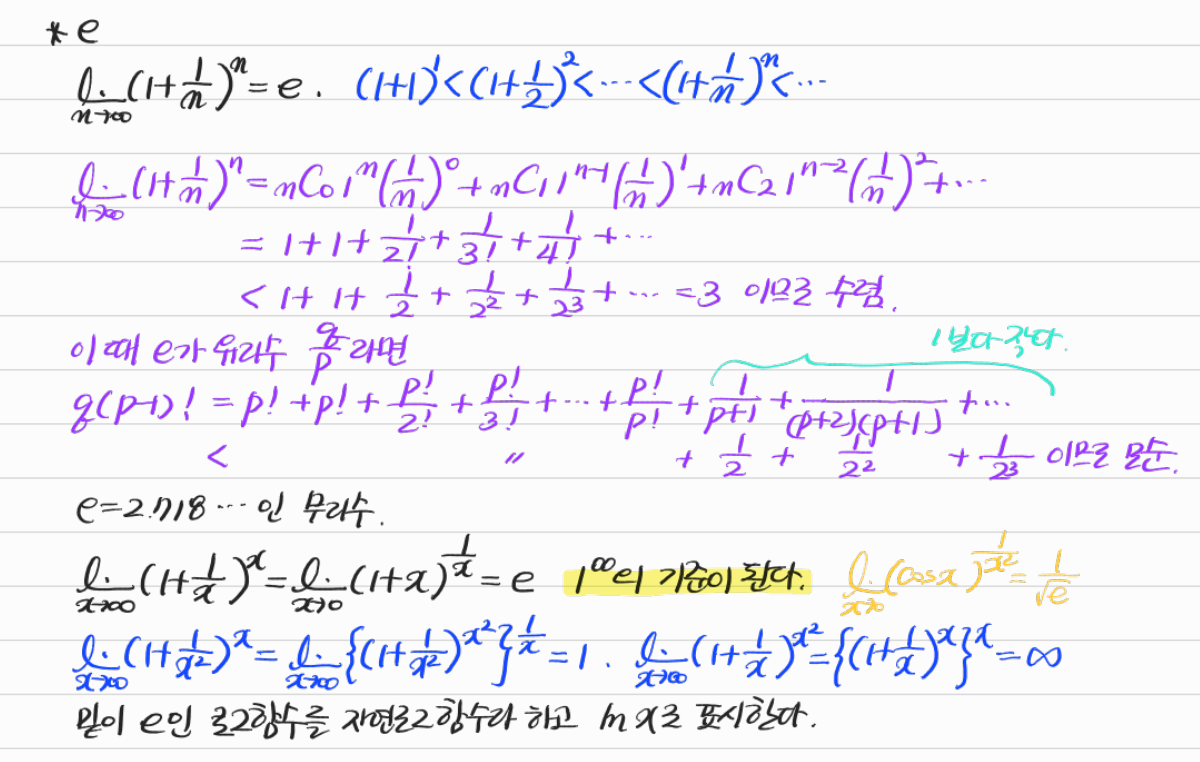 * e
lim_{n→∞}(1+1/n)^n = e. (1+1)^1 < (1+1/2)^2 < ⋯ < (1+1/n)^n < ⋯
lim_{n→∞}(1+1/n)^n = nC0 1^n (1/n)^0 + nC1 1^{n-1} (1/n)^1 + nC2 1^{n-2} (1/n)^2 + ⋯
= 1+1+1/2!+1/3!+1/4!+⋯
< 1+1+1/2+1/2^2+1/2^3+⋯ = 3 이므로 수렴.
이때 e가 유리수 q/p라면
1보다 작다.
q(p-1)! = p!+p!+p!/2!+p!/3!+⋯+p!/p!+1/(p+1)+1/((p+2)(p+1))+⋯
< 〃 + 1/2 + 1/2^2 + 1/2^3 이므로 모순.
e=2.718⋯인 무리수.
lim_{x→∞}(1+1/x)^x = lim_{x→0}(1+x)^{1/x} = e 1^∞의 기준이 된다. lim_{x→0}(cosx)^{1/x^2} = 1/√e
lim_{x→∞}(1+1/x^2)^x = lim_{x→∞}{(1+1/x^2)^{x^2}}^{1/x} = 1. lim_{x→∞}(1+1/x)^{x^2} = {(1+1/x)^x}^x = ∞
밑이 e인 로그함수를 자연로그함수라 하고 ln x로 표시한다.